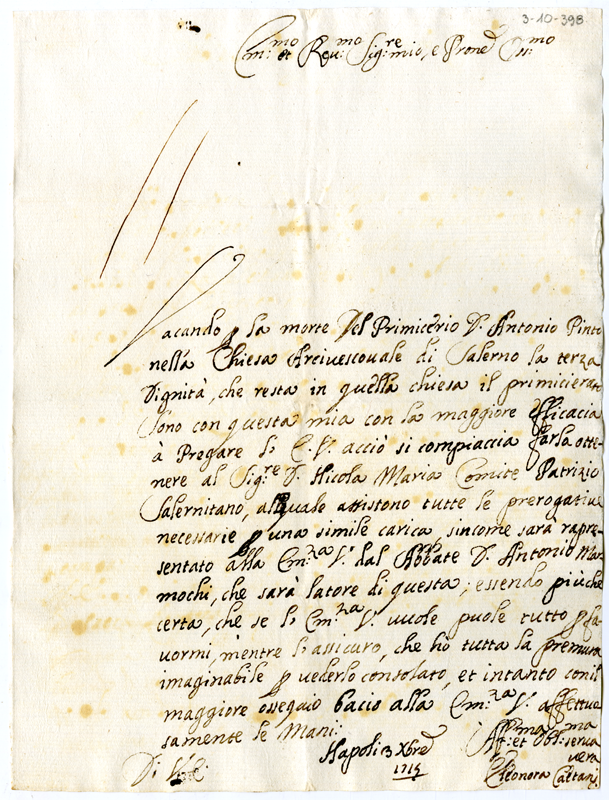 3-10-398
Em:mo et Reu:mo Sig:re mio, e Prone Oss:mo
Vacando p la morte del Primicerio D. Antonio Pinto
nella Chiesa Arciuescouale di Salerno la terza
Dignità, che resta in quella chiesa il primicerat
Sono con questa mia con la maggiore efficacia
à Pregare l'E.V. acciò si compiaccia farla otte-
nere al Sig.re D. Nicola Maria Comite Patrizio
Salernitano, al quale assistono tutte le prerogatiue
necessarie p una simile carica, sincome sarà rapre-
sentato alla Em:za V. dal Abbate D. Antonio
mochi, che sarà latore di questa; essendo più che
certa, che se l'Em:za V. uuole puole tutto p fa-
uormi, mentre l'assicuro, che hò tutta la premura
imaginabile p uederlo consolato, et intanto con il
maggiore ossequio bacio alla Em:za V. affettuo
samente le Mani:
Napoli 3 Xbre 1715
Di V.E.
Aff:ma et Obl:ma serua
uera
Eleonora Caetani